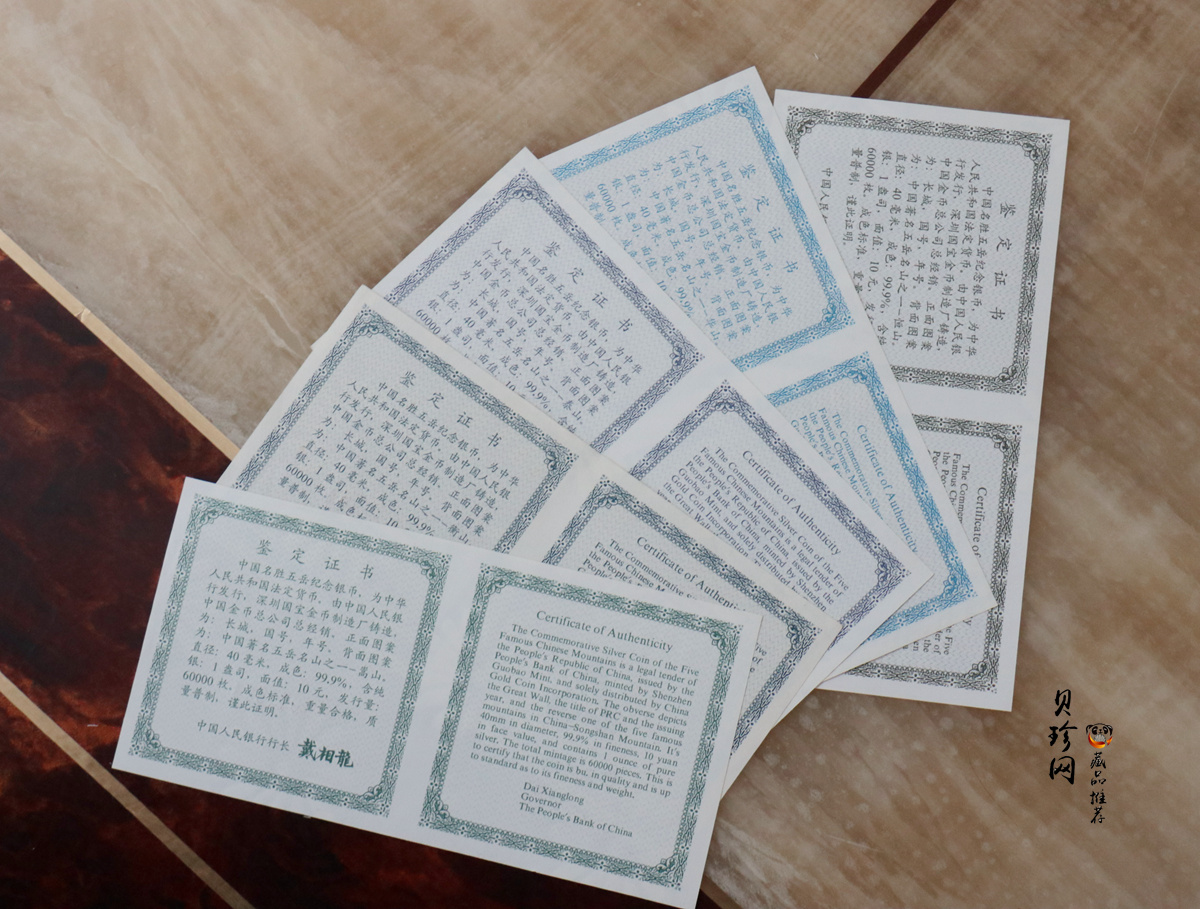 鉴定证书
中国名胜五岳纪念银币，为中华
人民共和国法定货币，由中国人民银
行发行，深圳国宝金币制造厂铸造，
中国金币总公司总经销，正面图案
为：长城，国号，年号，背面图案
为：中国著名五岳名山之一—嵩山，
直径：40毫米，成色：99.9%，含纯
银：1盎司，面值：10元，发行量：
60000枚，成色标准，重量合格，质
量普制，谨此证明。
中国人民银行行长 戴相龍
Certificate of Authenticity
The Commemorative Silver Coin of the Five
Famous Chinese Mountains is a legal tender of
the People's Republic of China, issued by the
People's Bank of China, minted by Shenzhen
Guobao Mint, and solely distributed by China
Gold Coin Incorporation. The obverse depicts
the Great Wall, the title of PRC and the issuing
year, and the reverse one of the five famous
mountains in China–Songshan Mountain. It's
40mm in diameter, 99.9% in fineness, 10 yuan
in face value, and contains 1 ounce of pure
silver. The total mintage is 60000 pieces. This is
to certify that the coin is bu, in quality and is up
to standard as to its fineness and weight.
Dai Xianglong
Governor
The People's Bank of China
鉴定证书
中国名胜五岳纪念银币，为中华
人民共和国法定货币，由中国人民银
行发行，深圳国宝金币制造厂铸造，
中国金币总公司总经销，正面图案
为：长城，国号，年号，背面图案
为：中国著名五岳名山之一—衡山
直径：40毫米，成色：99.9%
银：1盎司，面值：10
60000枚，成色
量普制，谨
Certificate of Authenticity
The Commemorative
Famous Chinese
the People's
People's
鉴定证书
中国名胜五岳纪念银币，为中华
人民共和国法定货币，由中国人民银
行发行，深圳国宝金币制造厂铸造，
中国金币总公司总经销，正面图案
为：长城，国号，年号，背面图案
为：中国著名五岳名山之一—泰山，
直径：40毫米，成色：99.9%，含纯
银：1盎司，面值：10
60000
Certificate of Authenticity
The Commemorative Silver Coin of the Five
Famous Chinese Mountains is a legal tender of
the People's Republic of China, issued by the
People's Bank of China, minted by Shenzhen
Guobao Mint, and solely distributed
Gold Coin Incorporation.
the Great Wall,
鉴定证书
中国名胜五岳纪念银币，为中华
人民共和国法定货币，由中国人民银
行发行，深圳国宝金币制造厂铸造，
中国金币总公司总经销，正面图案
为：长城，国号，年号，背面图案
为：中国著名五岳名山之一
直径：40毫米，成色：99.9%，
银：1盎司，面值：10
60000枚，成
量普制
Certificate of Authenticity
The Commemorative
Famous Chinese
the People's
People's
鉴定证书
中国名胜五岳纪念银币，为中华
人民共和国法定货币，由中国人民银
行发行，深圳国宝金币制造厂铸造，
中国金币总公司总经销，正面图案
为：长城，国号，年号，背面图案
为：中国著名五岳名山之一—恒山，
直径：40毫米，成色：99.9%，含纯
银：1盎司，面值：10元，发
60000枚，成色标准，重量
量普制，谨此证明。
中国人民
Certificate of
The Comme
Famous Ch
the Pe
贝珍网
藏品推荐